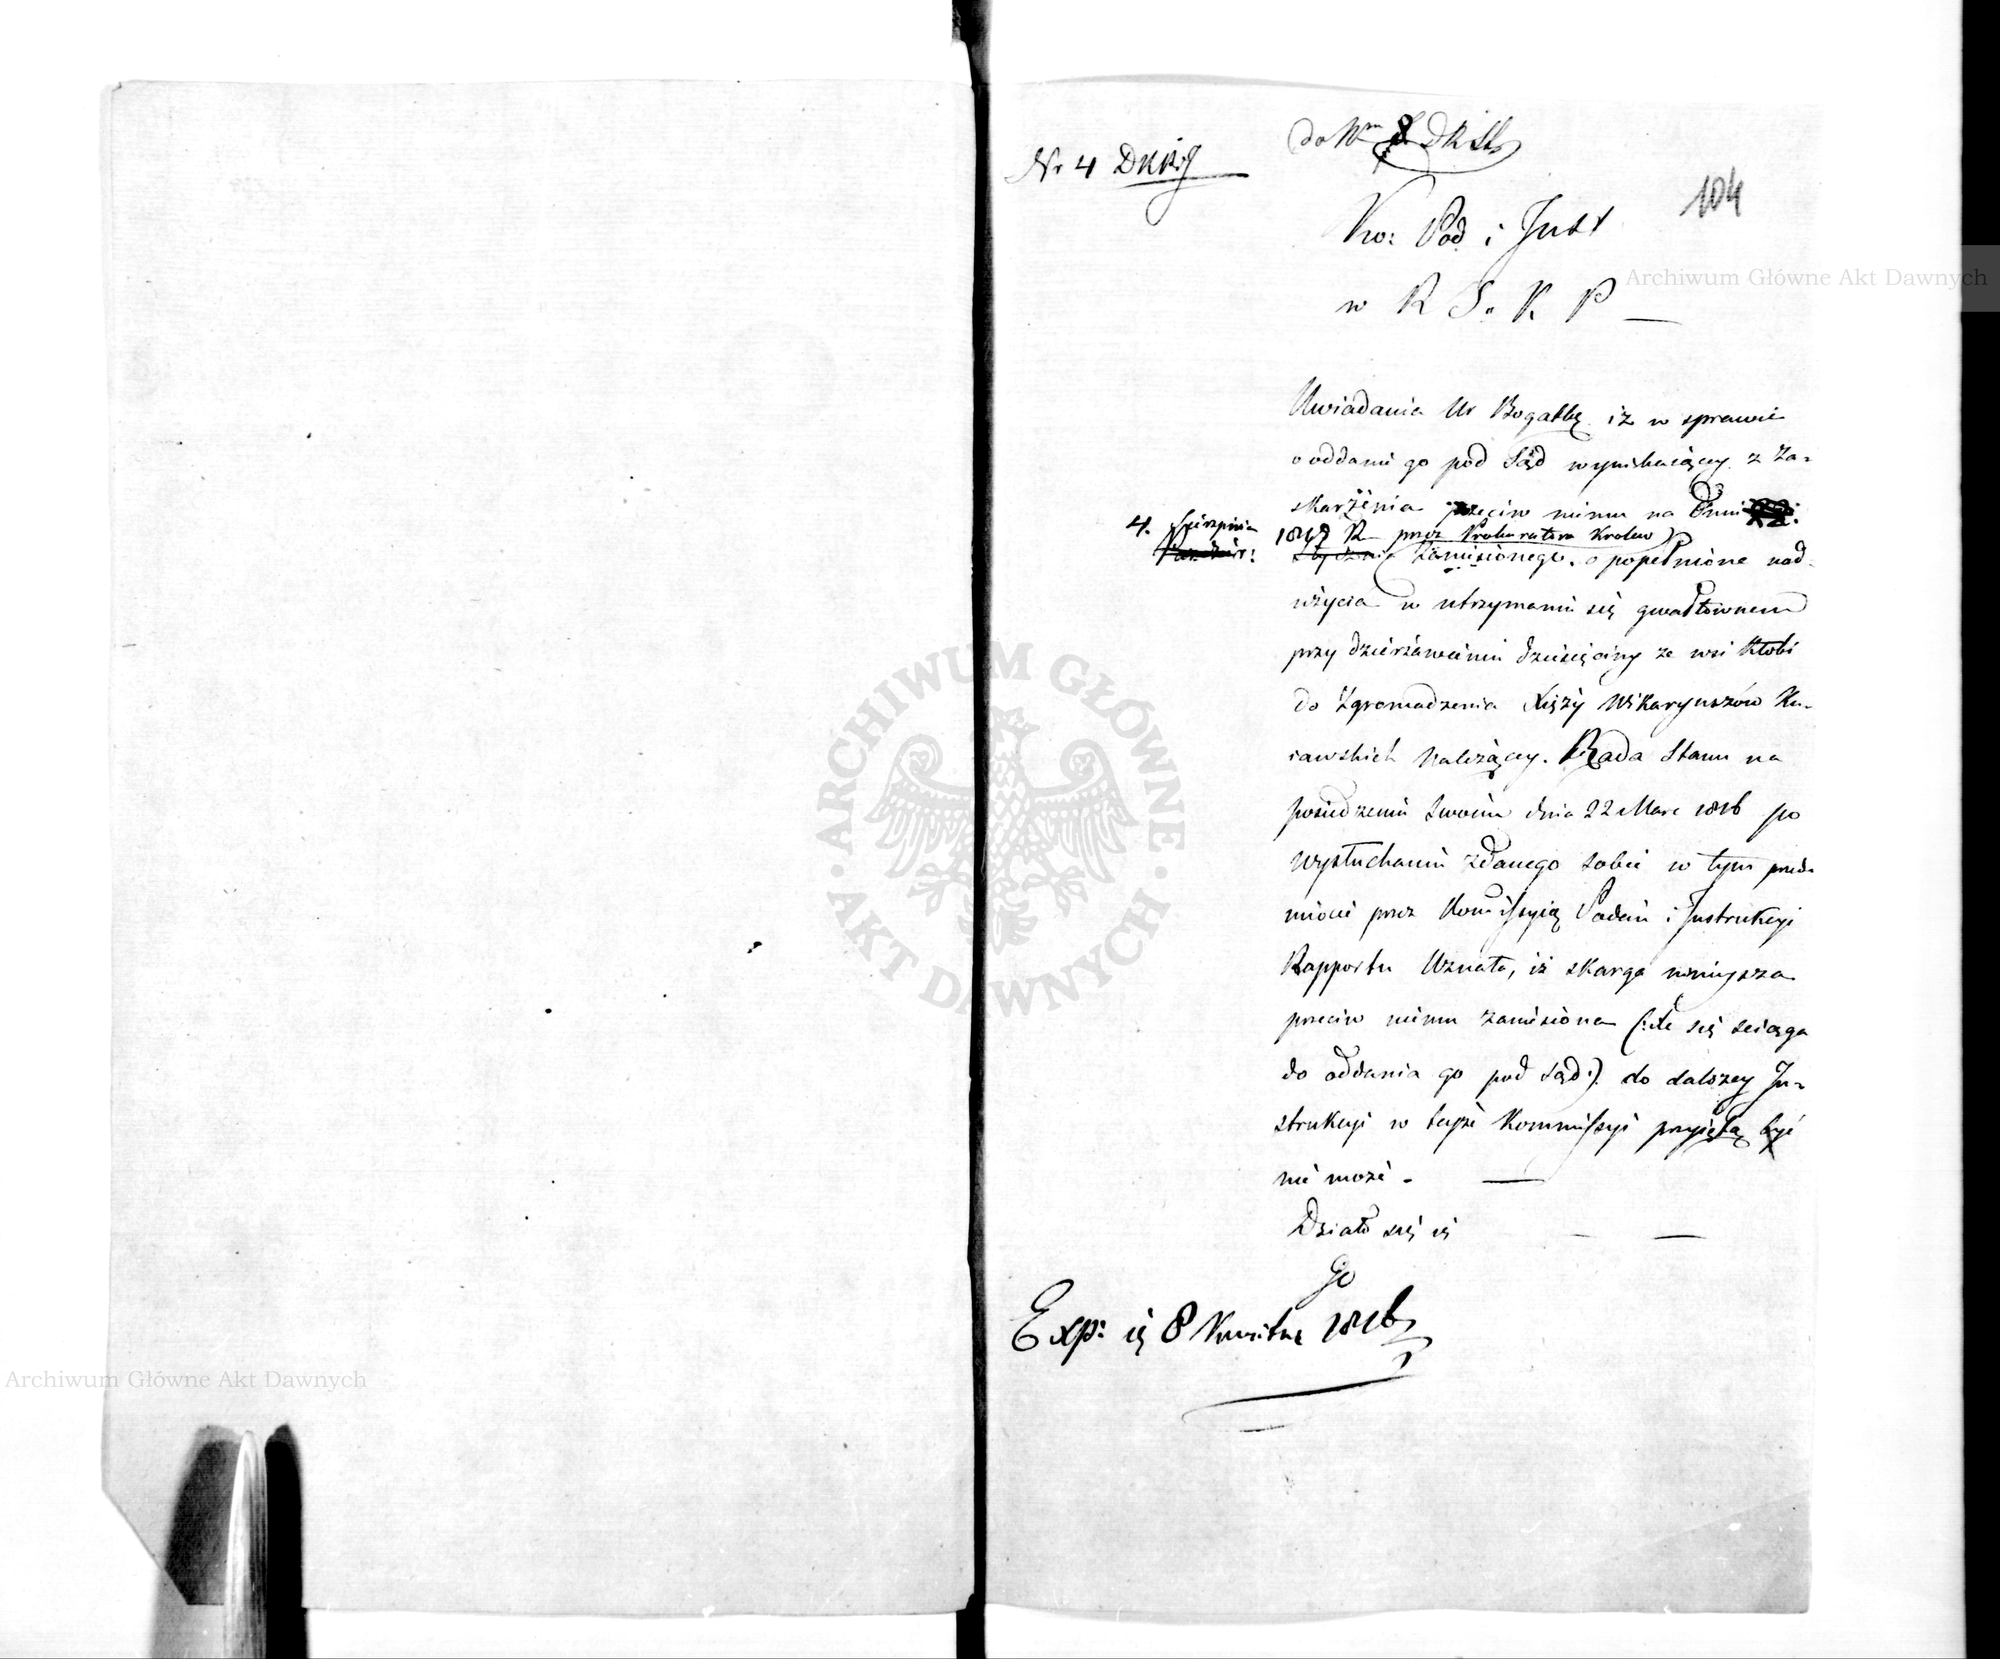 Nr 4 DKPiJ
do Nru 8 DKSt
104
Ko: Pod i Inst
w R S. K. P
Uwiadamia Ur Bogatkę iż w sprawie
o oddanie go pod Sąd wynikaiącey z Za-
skarżenia przeciw niemu na Dniu
4. Sierpnia
1817 R przez Prokuratora Królew)
Stycznia zaniesionego. o popełnione nad-
użycia w utrzymaniu się gwałtownem
przy dzierżawieniu dziesięciny ze wsi Kłobi
do Zgromadzenia Xięży Wikaryuszów Ku-
iawskich należącey. Rada Stanu na
posiedzeniu Swoim dnia 22 Marc 1816 po
wysłuchaniu zdanego sobie w tym przed-
miocie przez Kommissyią Podań i Instrukcyi
Rapportu Uznała, iż skarga ninieysza
przeciw niemu zaniesiona (: ile się sciąga
do oddania go pod sąd:) do dalszey In-
strukcyi w teyże Kommissyi przyiętą być
nie może.
Działo się
Go
Exp: d 8 Kwietnia 1816
Archiwum Główne Akt Dawnych
Archiwum Główne Akt Dawnych
· ARCHIWUM GŁÓWNE · AKT DAWNYCH